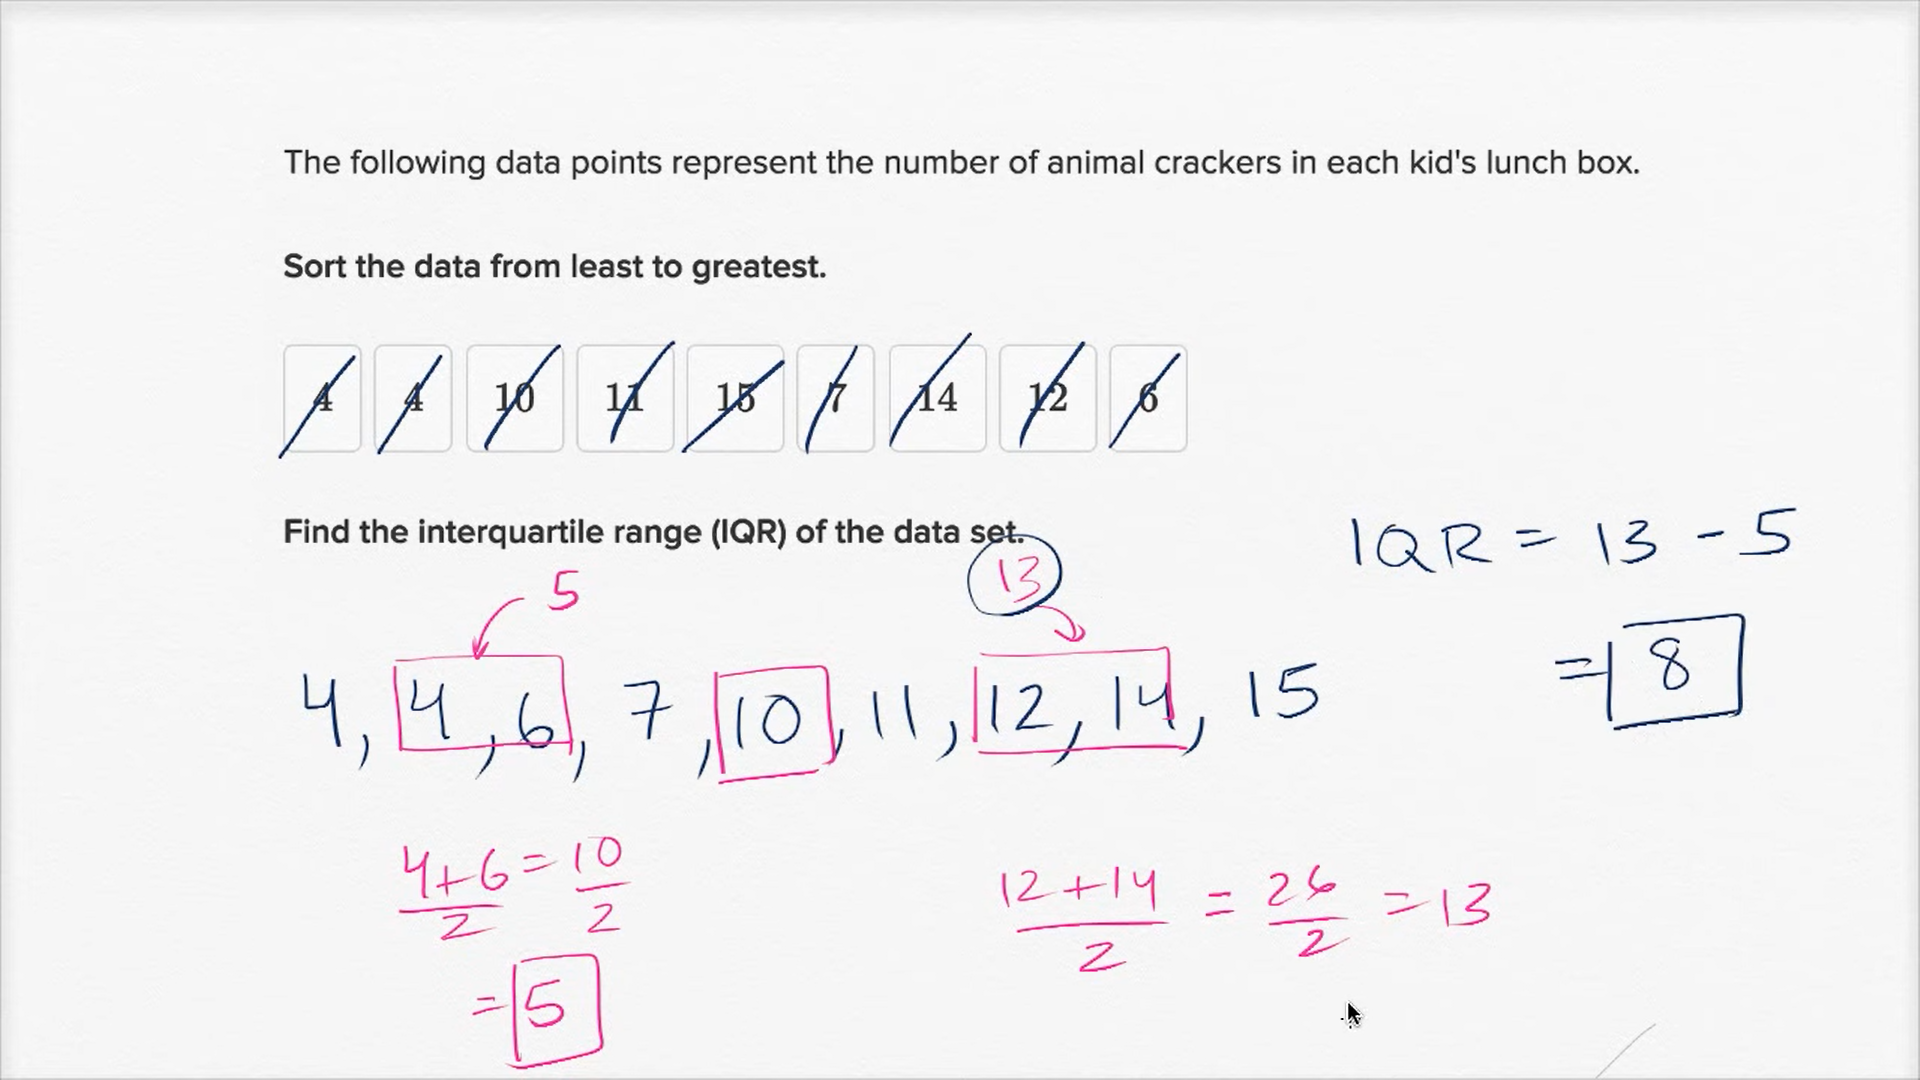 The following data points represent the number of animal crackers in each kid's lunch box.
Sort the data from least to greatest.
4 4 10 11 15 7 14 12 6
Find the interquartile range (IQR) of the data set.
IQR = 13 - 5
= 8
5
13
4, 4, 6, 7, 10, 11, 12, 14, 15
4+6/2 = 10/2
= 5
12+14/2 = 26/2 = 13